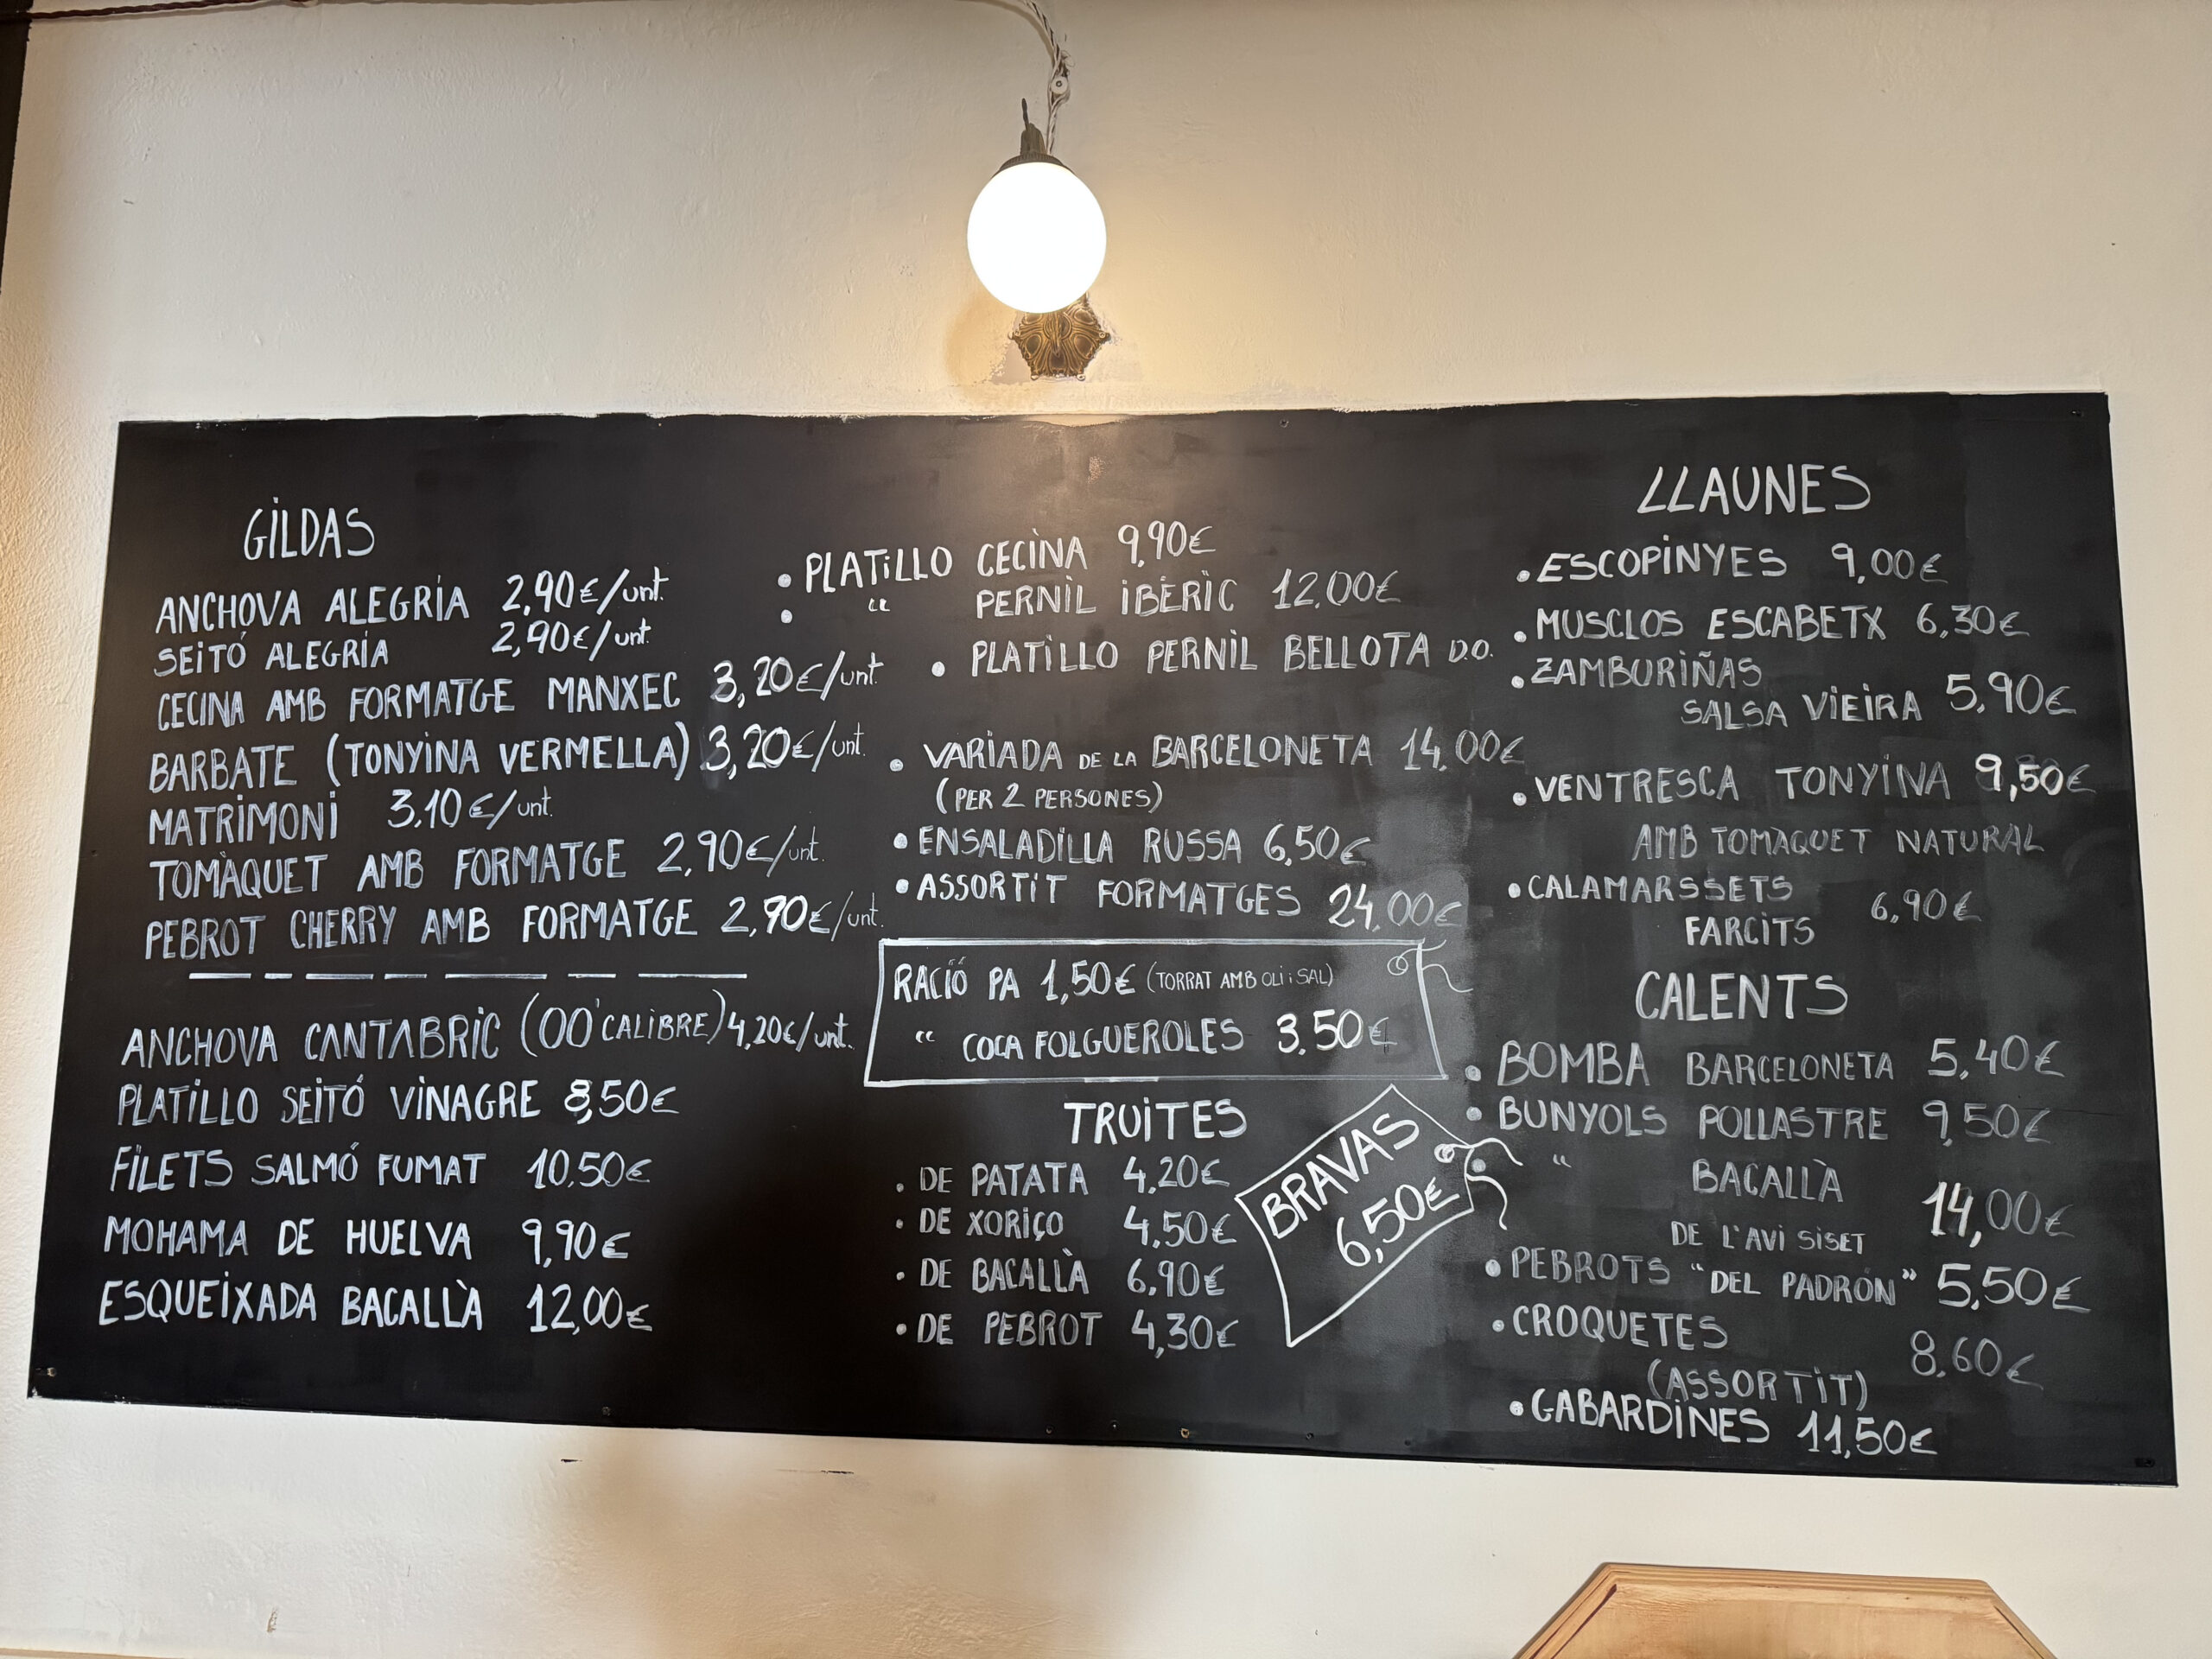 GILDAS
ANCHOVA ALEGRÍA 2,90€/unt.
SEITÓ ALEGRÍA 2,90€/unt.
CECINA AMB FORMATGE MANXEC 3,20€/unt.
BARBATE (TONYINA VERMELLA) 3,20€/unt.
MATRIMONI 3,10€/unt.
TOMÀQUET AMB FORMATGE 2,90€/unt.
PEBROT CHERRY AMB FORMATGE 2,90€/unt.
ANCHOVA CANTABRIC (00' CALIBRE) 4,20€/unt.
PLATILLO SEITÓ VINAGRE 8,50€
FILETS SALMÓ FUMAT 10,50€
MOHAMA DE HUELVA 9,90€
ESQUEIXADA BACALLÀ 12,00€
• PLATILLO CECINA 9,90€
• “ PERNIL IBÈRIC 12,00€
• PLATILLO PERNIL BELLOTA D.O.
• VARIADA DE LA BARCELONETA 14,00€
(PER 2 PERSONES)
• ENSALADILLA RUSSA 6,50€
• ASSORTIT FORMATGES 24,00€
RACIÓ PA 1,50€ (TORRAT AMB OLI i SAL)
“ COCA FOLGUEROLES 3,50€
TRUITES
• DE PATATA 4,20€
• DE XORIÇO 4,50€
• DE BACALLÀ 6,90€
• DE PEBROT 4,30€
BRAVAS
6,50€
LLAUNES
• ESCOPINYES 9,00€
• MUSCLOS ESCABETX 6,30€
• ZAMBURIÑAS
SALSA VIEIRA 5,90€
• VENTRESCA TONYINA 9,50€
AMB TOMAQUET NATURAL
• CALAMARSSETS
FARCITS 6,90€
CALENTS
• BOMBA BARCELONETA 5,40€
• BUNYOLS POLLASTRE 9,50€
“ BACALLÀ
DE L'AVI SISET 14,00€
• PEBROTS “DEL PADRÓN” 5,50€
• CROQUETES
(ASSORTIT) 8,60€
• GABARDINES 11,50€